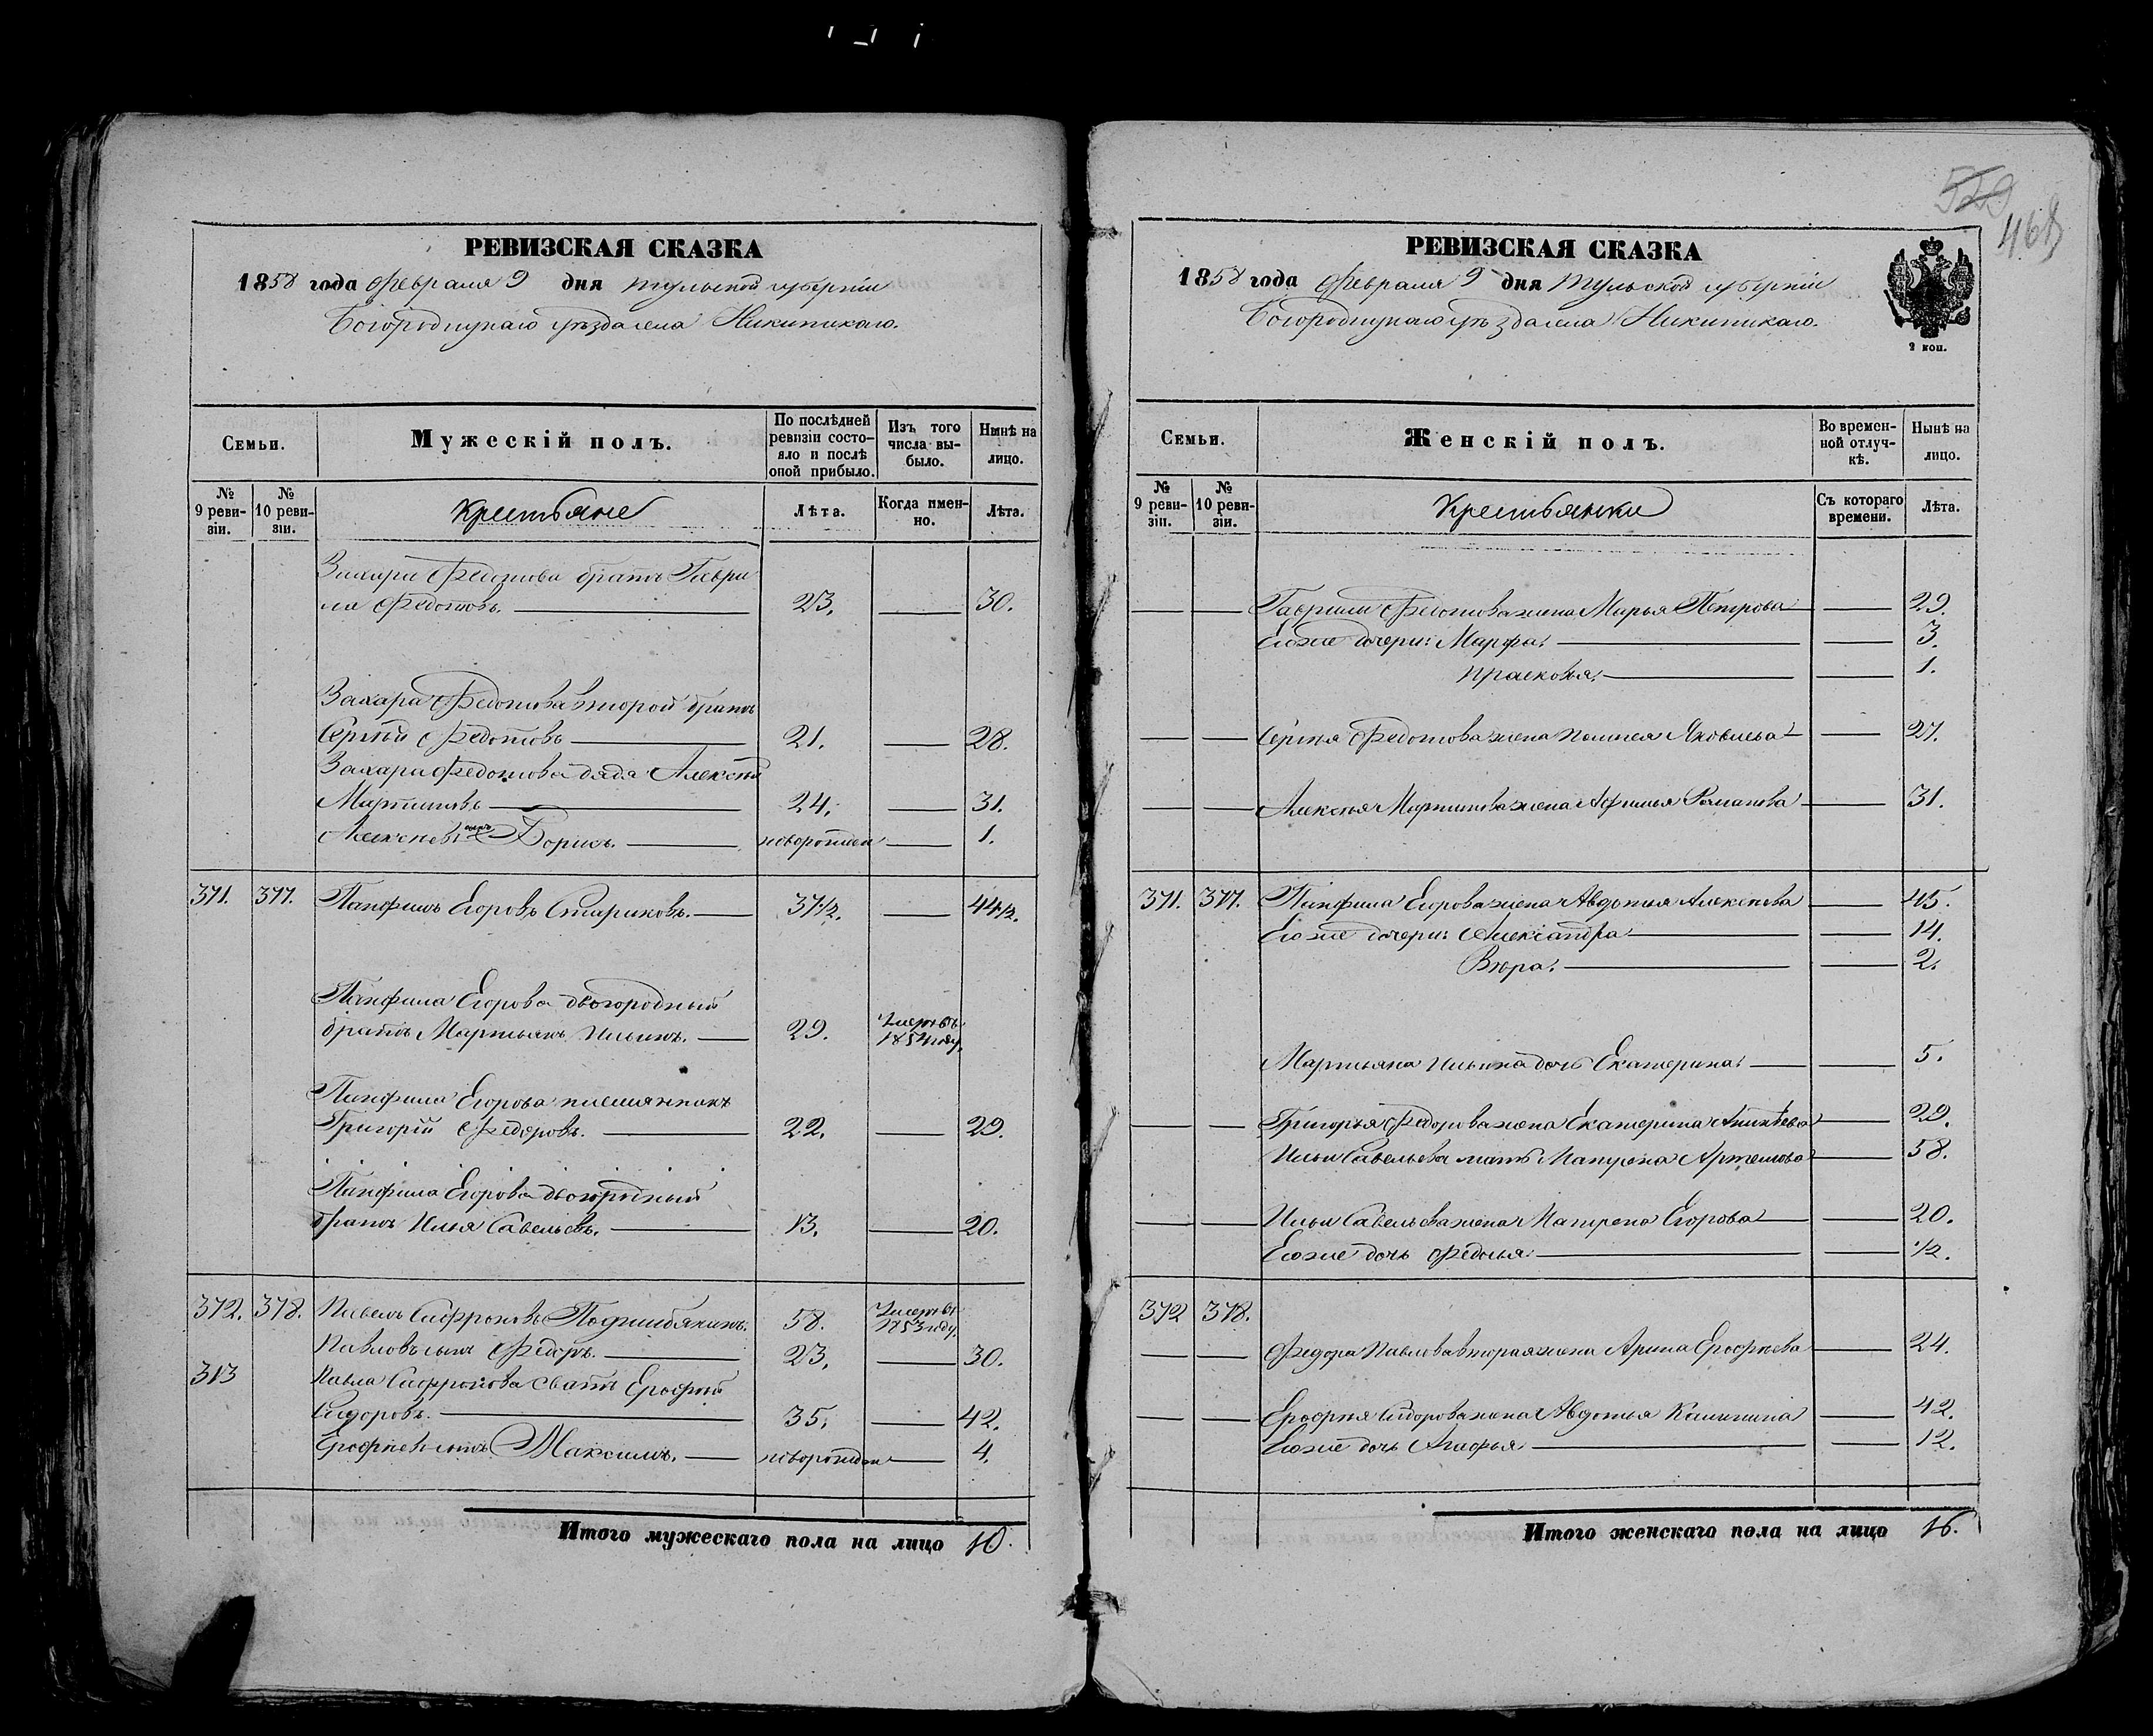 529
468
РЕВИЗСКАЯ СКАЗКА
1858 года Февраля 9 дня Тульской губерніи
Богородицкаго уѣзда села Никитскаго.
Семьи.
Мужескій полъ.
По послѣдней ревизіи состояло и послѣ оной прибыло.
Изъ того числа выбыло.
Нынѣ на лицо.
№ 9 ревизіи.
№ 10 ревизіи.
Крестьяне
Лѣта.
Когда именно.
Лѣта.
Захара Федотова братъ Гаври
ла Федотовъ. 23. 30.
Захара Федотова второй братъ
Сергѣй Федотовъ 21. 28.
Захара Федотова дядя Алексѣй
Мартиновъ 24. 31.
Алексѣевъ сынъ Борисъ. новорожден 1.
371. 377. Панфилъ Егоровъ Стариковъ. 37½. 44½.
Панфила Егорова двоюродный
братъ Мартьянъ Ильинъ. 29. Умеръ въ
году.
Панфила Егорова племянникъ
Григорій Федоровъ. 22. 29.
Панфила Егорова двоюродный
братъ Илья Савельевъ. 13. 20.
372. 378. Павелъ Сафроновъ 58. Умеръ въ
1853 году.
Павловъ сынъ Федоръ. 23. 30.
313 Павла Сафронова сватъ Ерофѣй
Сидоровъ. 35. 42.
Ерофѣевъ сынъ Максимъ. новорожден 4.
Итого мужескаго пола на лицо 10.
РЕВИЗСКАЯ СКАЗКА
1858 года Февраля 9 дня Тульской губерніи
Богородицкаго уѣзда села Никитскаго.
2 коп.
Семьи.
Женскій полъ.
Во временной отлучкѣ.
Нынѣ на лицо.
№ 9 ревизіи.
№ 10 ревизіи.
Крестьянки
Съ котораго времени.
Лѣта.
Гаврилы Федотова жена Марья Петрова 29.
Егоже дочери: Марфа. 3.
Прасковья. 1.
Сергѣя Федотова жена Яковлева 27.
Алексѣя Мартинова жена Афимья Романова 31.
371. 377. Панфила Егорова жена Авдотья Алексѣева 45.
Егоже дочери: Александра 14.
Вѣра. 2.
Мартьяна Ильина дочь Екатерина. 5.
Григорья Федорова жена Екатерина 29.
Ильи Савельева мать Матрена Артемова 58.
Ильи Савельева жена Матрена Егорова 20.
Егоже дочь Федосья ½.
372 378.
Федора Павлова вторая жена Арина Ерофѣева 24.
Ерофѣя Сидорова жена Авдотья Калинина 42.
Егоже дочь Агафья 12.
Итого женскаго пола на лицо 16.